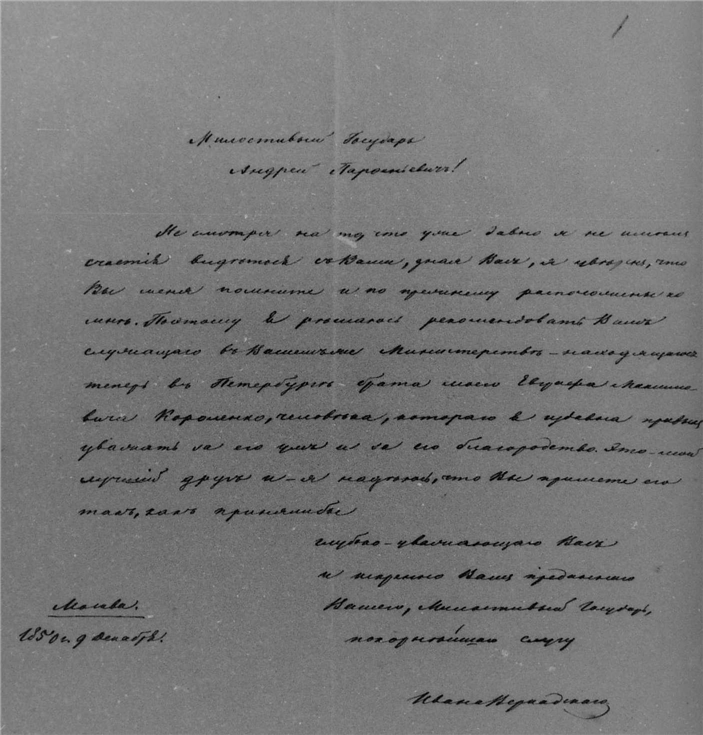 Милостивый Государь
Андрей Парфеньевичъ!
Не смотря на то, что уже давно я не имѣлъ
счастія видѣться съ Вами, зная Васъ, я увѣренъ, что
Вы меня помните и по прежнему расположены ко
мнѣ. Поэтому я рѣшаюсь рекомендовать Вамъ
служащаго въ Вашемъ же Министерствѣ – находящагося
теперь въ Петербургѣ – брата моего Евграфа Максимо-
вича Короленко, человѣка, котораго я издавна привыкъ
уважать за его умъ и за его благородство. Это – мой
лучшій другъ и – я надѣюсь, что Вы примете его
такъ, какъ приняли бы
глубоко – уважающаго Васъ
и искренно Вамъ преданнаго
Вашего, Милостивый Государь,
покорнѣйшаго слугу
Москва.
1850 г. 9 Декабря.
Ивана Вернадскаго